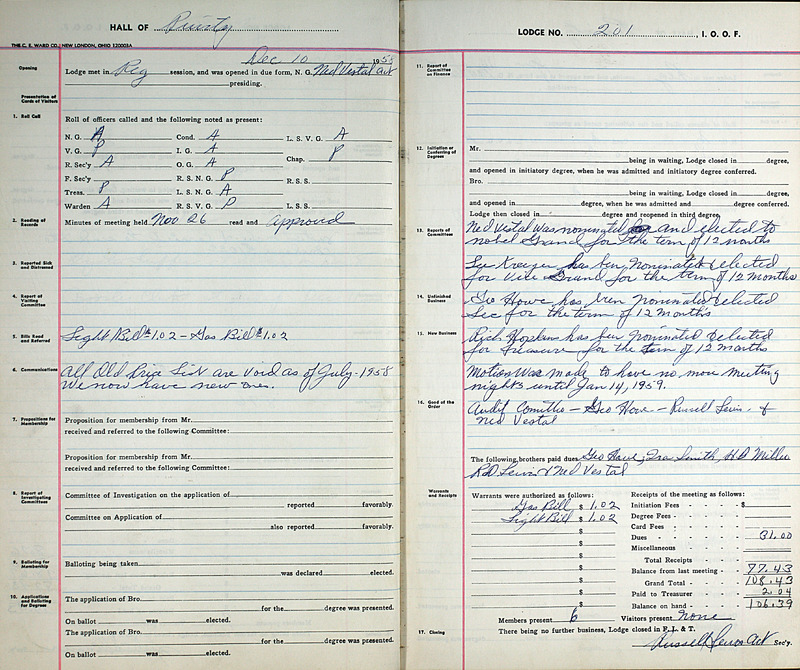 HALL OF Purity
THE C. E. WARD CO., NEW LONDON, OHIO 12000SA
Dec 10 1958
Opening
Lodge met in Reg session, and was opened in due form, N. G. Ned Vestal act
presiding.
Presentation of Cards of Visitors
1. Roll Call
Roll of officers called and the following noted as present:
N. G. A Cond. A L. S. V. G. A
V. G. P I. G. A Chap. P
R. Sec'y A O. G. A
F. Sec'y R. S. N. G. P R. S. S.
Treas. P L. S. N. G. A
Warden A R. S. V. G. P L. S. S.
2. Reading of Records
Minutes of meeting held Nov 26 read and approved
3. Reported Sick and Distressed
4. Report of Visiting Committee
5. Bills Read and Referred
Light Bill $1.02 - Gas Bill $1.02
6. Communications
All Old Price List are void as of July-1958
We now have new ones.
7. Propositions for Membership
Proposition for membership from Mr.
received and referred to the following Committee:
Proposition for membership from Mr.
received and referred to the following Committee:
8. Report of Investigating Committees
Committee of Investigation on the application of
reported favorably.
Committee on Application of
also reported favorably.
9. Balloting for Membership
Balloting being taken
was declared elected.
10. Applications and Balloting for Degrees
The application of Bro.
for the degree was presented.
On ballot was elected.
The application of Bro.
for the degree was presented.
On ballot was elected.
LODGE NO. 201, I. O. O. F.
11. Report of Committee on Finance
12. Initiation or Conferring of Degrees
Mr.
being in waiting, Lodge closed in degree,
and opened in initiatory degree, when he was admitted and initiatory degree conferred.
Bro.
being in waiting, Lodge closed in degree,
and opened in degree, when he was admitted and degree conferred.
Lodge then closed in degree and reopened in third degree.
13. Reports of Committees
Ned Vestal was nominated and elected to
nobel Grand for the term of 12 months
Geo Kreiger has ben Nominated & elected
for Vice Grand for the term of 12 Months
14. Unfinished Business
Geo Howe has ben nominated & elected
Sec for the term of 12 months
15. New Business
Rich Hopkins has ben nominated & elected
for treasure for the term of 12 months
Motion was made to have no more meeting
nights until Jan 14, 1959.
16. Good of the Order
Audit Comittee - Geo Howe - Russell Lewis &
Ned Vestal
The following brothers paid dues Geo Howe, Ira Smith, H.D. Miller
R.D Lewis & Ned Vestal
Warrants and Receipts
Warrants were authorized as follows: Receipts of the meeting as follows:
Gas Bill $ 1.02 Initiation Fees $
Light Bill $ 1.02 Degree Fees
$ Card Fees
$ Dues 31.00
$ Miscellaneous
$ Total Receipts
$ Balance from last meeting 77.43
$ Grand Total 108.43
$ Paid to Treasurer 2.04
$ Balance on hand 106.39
Members present 6 Visitors present None
17. Closing
There being no further business, Lodge closed in F., L. & T.
Russell Lewis Act Sec'y.